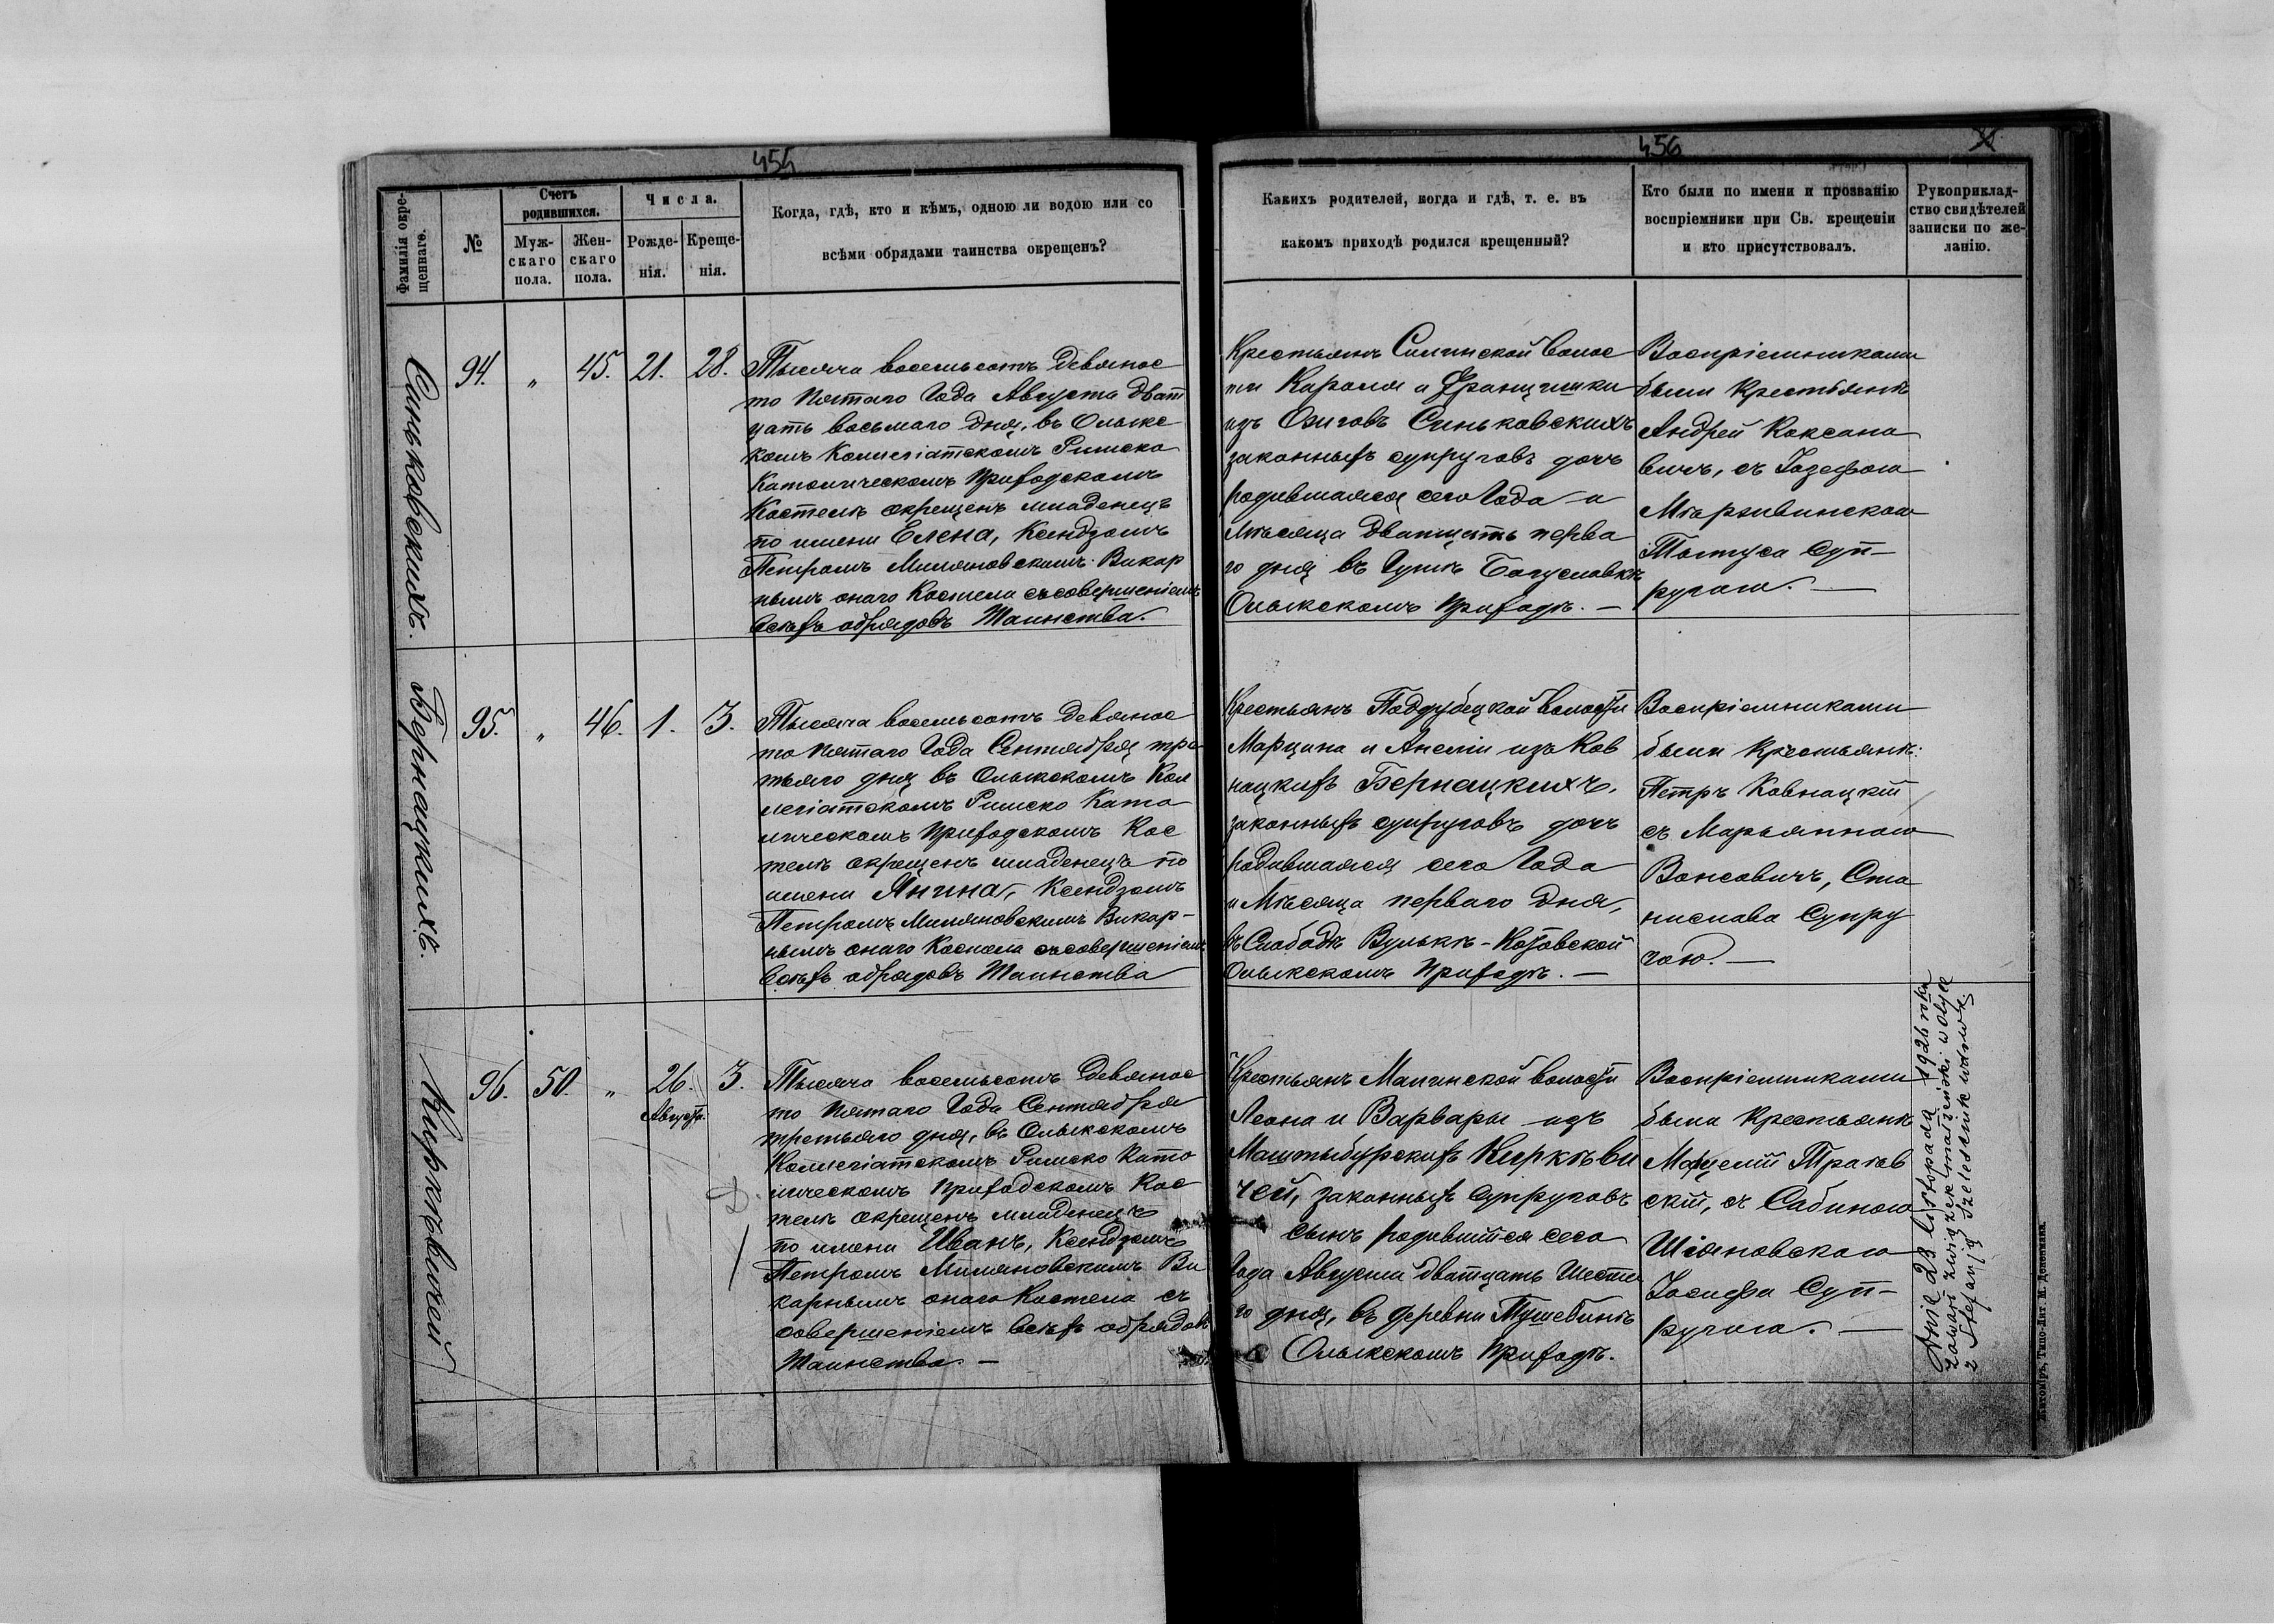 455
456
Фамилія окре-
щеннаго.
№
Счетъ
родившихся.
Муж-
скаго
пола.
Жен-
скаго
пола.
Числа.
Рожде-
нія.
Креще-
нія.
Когда, гдѣ, кто и кѣмъ, одною ли водою или со
всѣми обрядами таинства окрещенъ?
Какихъ родителей, когда и гдѣ, т. е. въ
какомъ приходѣ родился крещенный?
Кто были по имени и прозванію
воспріемники при Св. крещеніи
и кто присутствовалъ.
Рукоприклад-
ство свидѣтелей
записки по же-
ланію.
Синьковскихъ.
94. " 45. 21. 28.
Тысяча восемьсотъ девянос
то пятаго Года Августа дват
цать восьмаго дня, въ Олыкс
комъ Коллегіатскомъ Римско
Католическомъ Приходскомъ
Костелѣ окрещенъ младенецъ
по имени Елена, Ксендзомъ
Петромъ Миляновскимъ Викар
нымъ онаго Костела съ совершеніемъ
всѣхъ обрядовъ Таинства.
Крестьянъ Силинской волос
ти Кароля и Францишки
изъ Синьковскихъ
законныхъ супруговъ дочь
родившаяся сего Года и
Мѣсяца дватцать перва
го дня въ Гутѣ Богуславкѣ
Олыкскомъ Приходѣ. —
Воспріемниками
были Крестьянѣ
Андрей Коксано
вичъ, съ Іозефою
Мѣрзвинскою
Суп-
ругою. —
Бернацкихъ.
95. " 46. 1. 3.
Тысяча восемьсотъ девянос
то пятаго Года Сентября тре
тьяго дня въ Олыкскомъ Кол
легіатскомъ Римско Като
лическомъ Приходскомъ Кос
телѣ окрещенъ младенецъ по
имени Янина, Ксендзомъ
Петромъ Миляновскимъ Викар-
нымъ онаго Костела съ совершеніемъ
всѣхъ обрядовъ Таинства
Крестьянъ Поддубецкой волости
Марцина и Анеліи изъ Ков
нацкихъ Бернацкихъ,
законныхъ супруговъ дочь
родившаяся сего Года
и Мѣсяца перваго дня,
въ Слободѣ Вулькѣ-Котовской
Олыкскомъ Приходѣ. —
Воспріемниками
были Крестьянѣ:
Петръ Ковнацкій
съ Марьянною
Вонсовичъ, Ста
нислава Супру
гою. —
Киркѣвичей
96. 50. " 26. 3.
Августа.
Тысяча восемьсотъ девянос
то пятаго Года Сентября
третьяго дня, въ Олыкскомъ
Коллегіатскомъ Римско Като
лическомъ Приходскомъ Кос
телѣ окрещенъ младенецъ
по имени Иванъ, Ксендзомъ
Петромъ Миляновскимъ Ви
карнымъ онаго Костела съ
совершеніемъ всѣхъ обрядовъ
Таинства. —
Крестьянъ Малинской волости
Леона и Варвары изъ
Маштыбурскихъ Киркѣви
чей, законныхъ Супруговъ
сынъ родившійся сего
Года Августа дватцать Шеста
го дня, въ деревни Тушебинѣ
Олыкскомъ Приходѣ.
Воспріемниками
были Крестьянѣ
Мацелій Трачев
скій, съ Сабиною
Шіяновскою
Іосифа Суп-
ругою. —
Dnia 23 listopada 1926 roku
zawarł związek małżeński w Ołyce
z Stefanją Szeleśnik wdową.
Житоміръ, Типо-Лит. М. Дененмана.